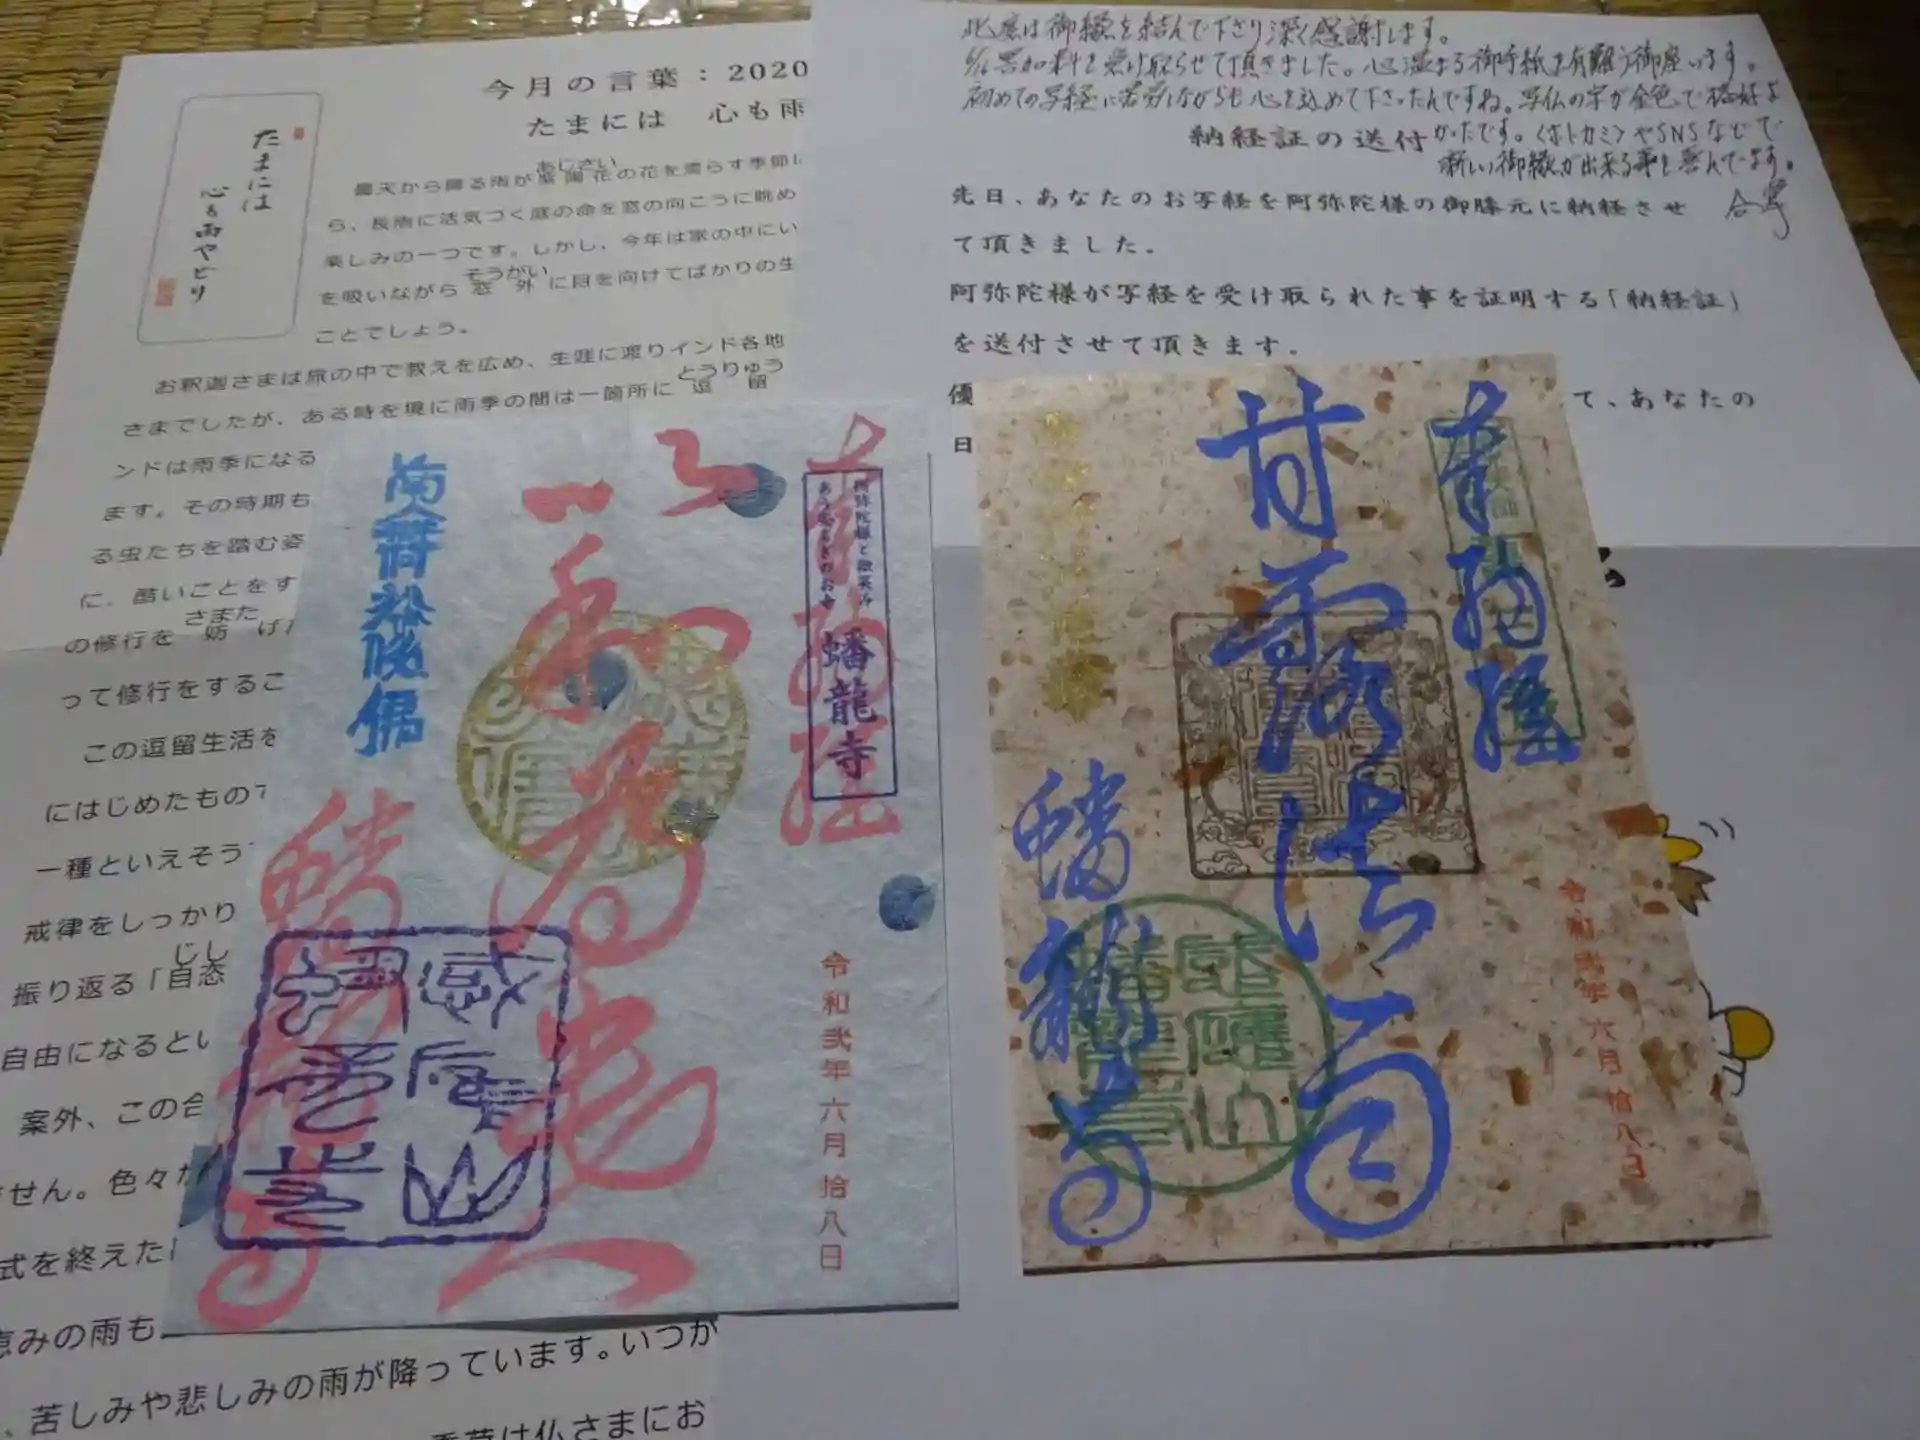 今月の言葉：2020
たまには 心も雨
たまには
心も雨やどり
あじさい
曇天から降る雨が紫陽花の花を濡らす季節に
ら、長雨に活気づく庭の命を窓の向こうに眺め
楽しみの一つです。しかし、今年は家の中にい
そうがい
を吸いながら窓外に目を向けてばかりの生
ことでしょう。
お釈迦さまは旅の中で教えを広め、生涯に渡りインド各地
とうりゅう
さまでしたが、ある時を境に雨季の間は一箇所に逗留
ンドは雨季になる
ます。その時期も
る虫たちを踏む姿
に、酷いことをす
さまた
の修行を妨げ
って修行をするこ
この逗留生活を
にはじめたもので
一種といえそう
戒律をしっかり
じし
振り返る「自恣
自由になるとい
案外、この合
せん。色々な
式を終えた
恵みの雨も
、苦しみや悲しみの雨が降っています。いつか
は仏さまにお
此度は御縁を結んで下さり深く感謝します。
を受け取らせて頂きました。心温まる御手紙を有難う御座います。
初めての写経に苦労しながらも心を込めて下さったんですね。写仏の字が金色で格好よ
かったです。〈ホトカミ〉やSNSなどで
新しい御縁が出来る事を喜んでます。
合掌
納経証の送付
先日、あなたのお写経を阿弥陀様の御膝元に納経させ
て頂きました。
阿弥陀様が写経を受け取られた事を証明する「納経証」
を送付させて頂きます。
優
て、あなたの
日
奉納経
阿弥陀様と
蟠龍寺
以和為貴
令和弐年六月拾八日
感應山
蟠龍寺
奉納経
甘露法雨
蟠龍寺
令和弐年六月拾八日